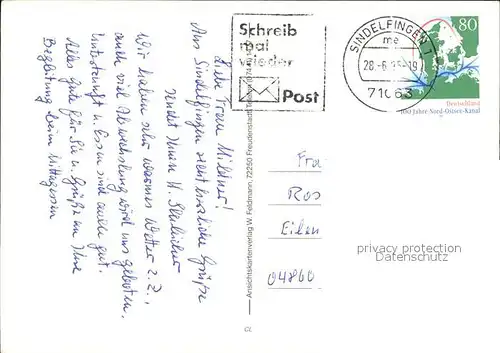 Schreib
mal
wieder
Post
SINDELFINGEN 1
me
28.-6.95-19
71063
80
Deutschland
100 Jahre Nord-Ostsee-Kanal
Liebe Frau Mildner!
Aus Sindelfingen recht herzliche Grüße
sendet Ihnen H.
Wir haben sehr warmes Wetter z.Z.,
auch viel Abwechslung wird uns geboten.
Unterkunft u. Essen sind auch gut.
Alles Gute für Sie u. Grüße an Ihre
Begleitung beim Mittagessen
Ansichtskartenverlag W. Feldmann, 72250 Freudenstadt
CL
Fra
Ros
Eilen
04860
privacy protection
Datenschutz